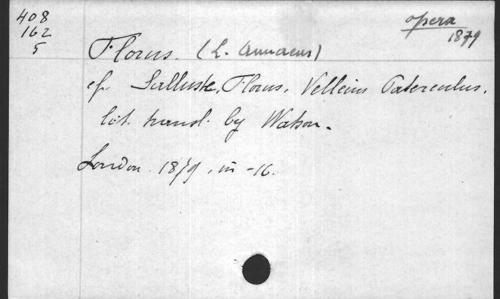 408
162
5
opera
1879
Florus. (L. Annaeus)
cf. Salluste, Florus, Velleius Paterculus.
lit. transl. by Watson.
London. 1879, in-16.